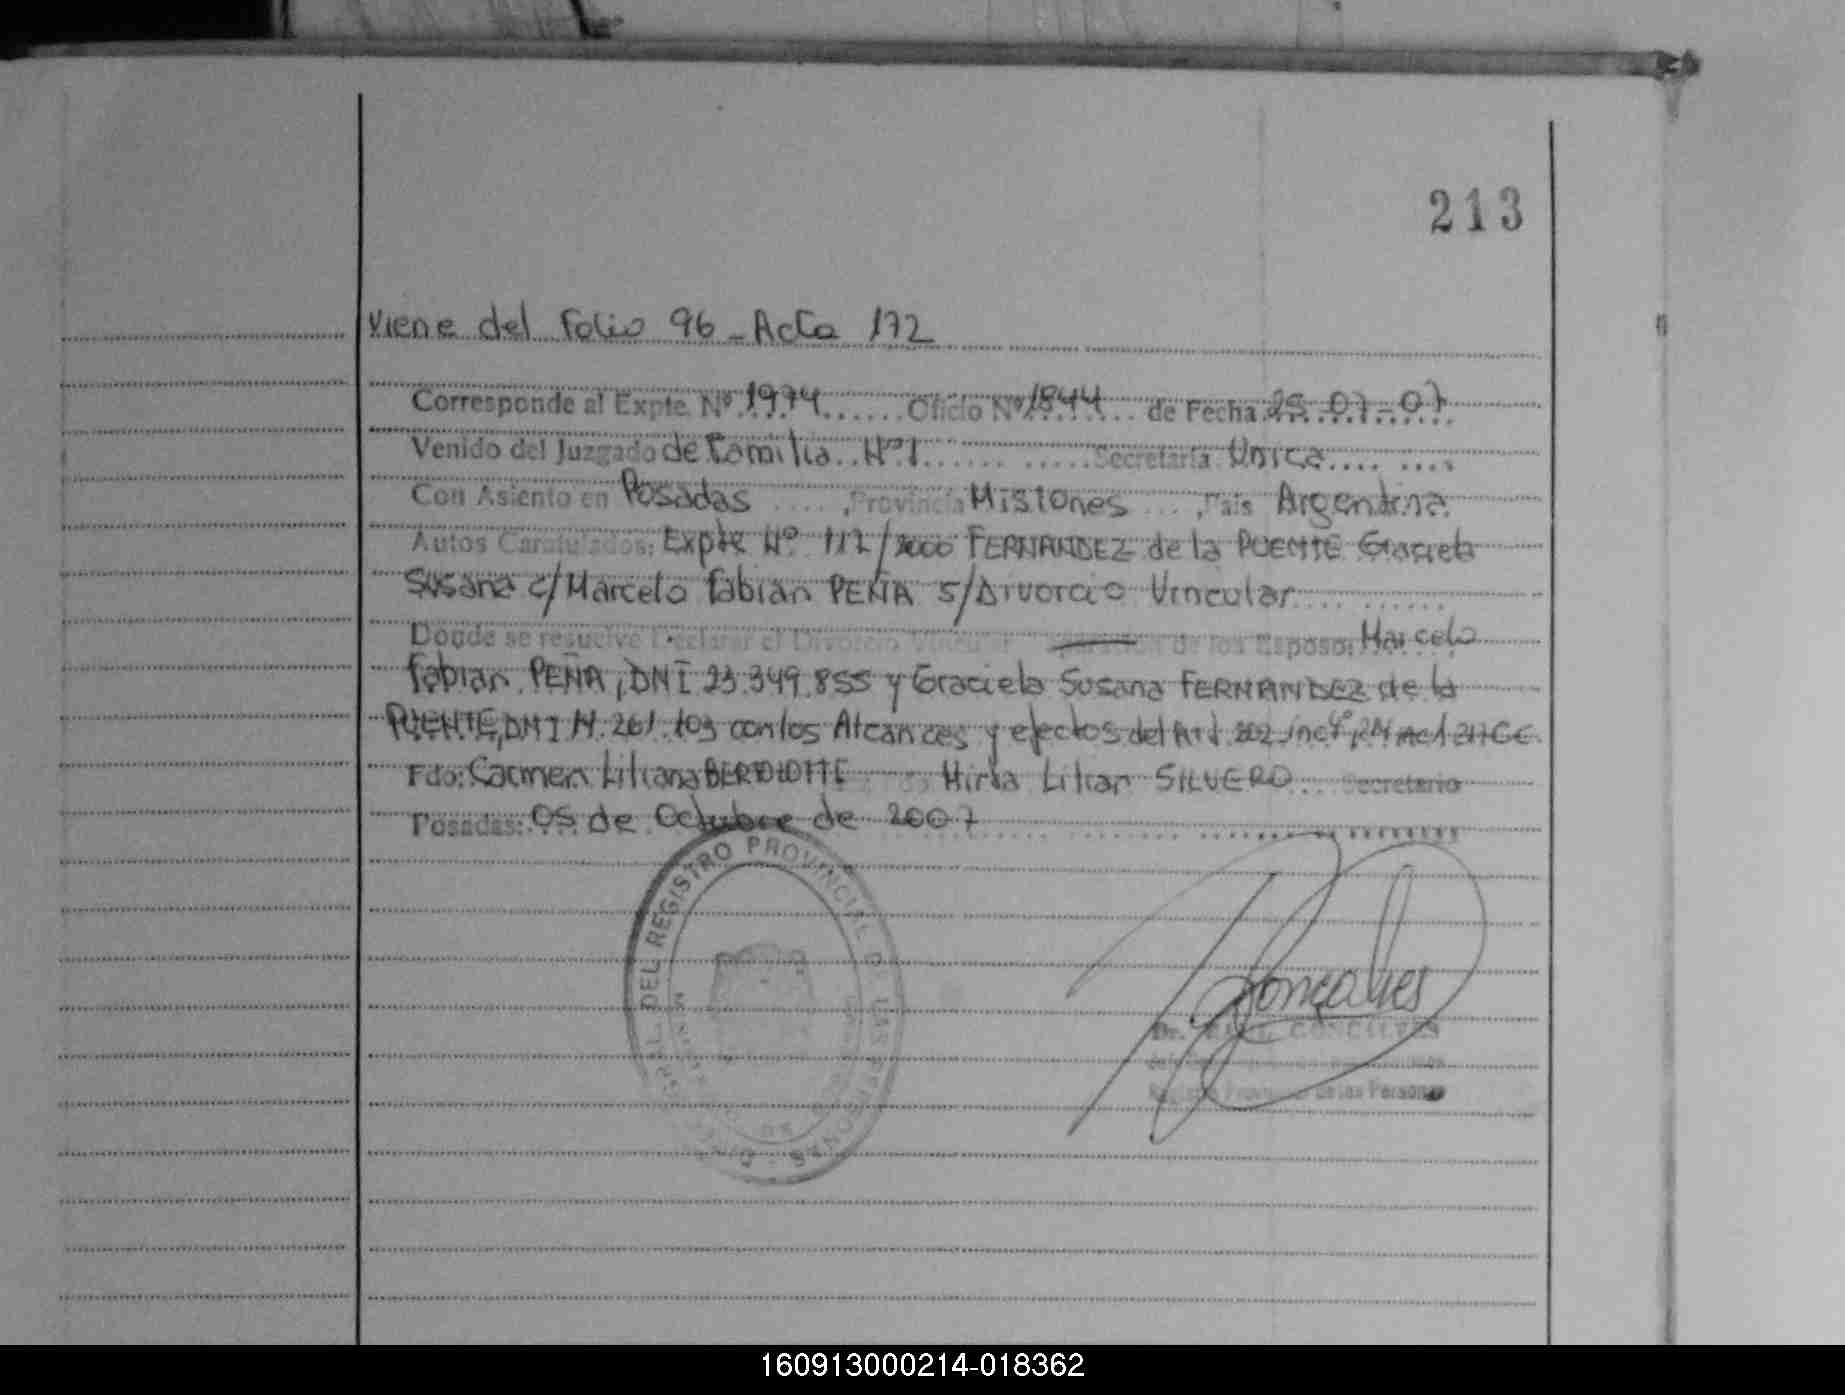 213
Viene del Folio 96 - Acta 172
Corresponde al Expte. Nº 1974 Oficio Nº 1844 de Fecha 25-07-07
Venido del Juzgado de Familia Nº 1 Secretaría Única
Con Asiento en Posadas, Provincia Misiones, País Argentina
Autos Caratulados: Expte Nº 112/2000 FERNANDEZ de la PUENTE Graciela
Susana c/ Marcelo Fabian PEÑA s/Divorcio Vincular
Donde se resuelve Declarar el Divorcio Vincular de los Esposos Marcelo
Fabian PEÑA, DNI 23.349.855 y Graciela Susana FERNANDEZ de la
PUENTE, DNI con los Alcances y efectos del Art. 202 inc 4º,
Fdo: Carmen Liliana Mirta Lilian SILVERO Secretario
Posadas: 05 de Octubre de 2007
DEL REGISTRO PROVINCIAL DE LAS PERSONAS
Gonçalves
Dr. GONCALVES
Registro Provincial de las Personas
160913000214-018362